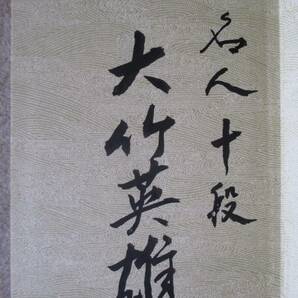 名人十段
大竹英雄